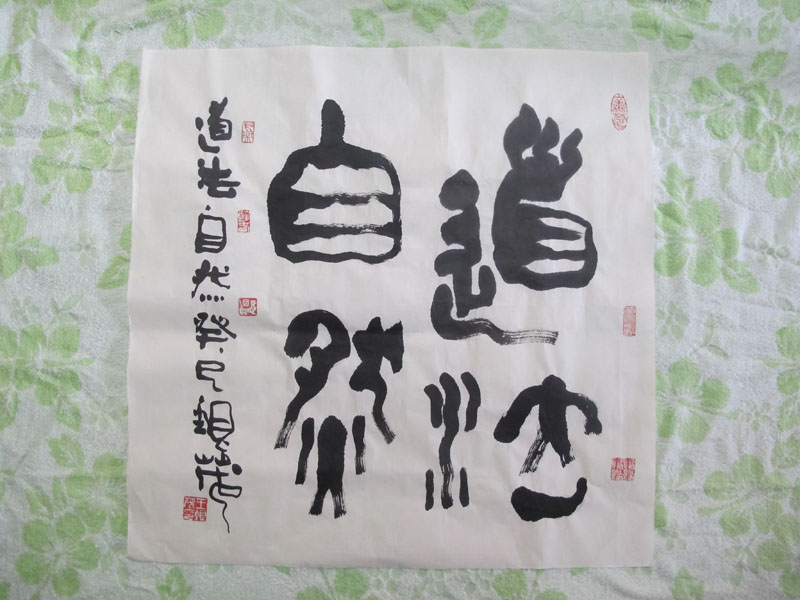 道法
自然
道法自然癸巳